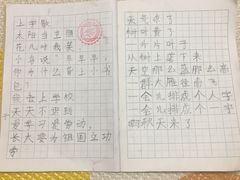 上学歌
太阳当空照
花儿对我笑
小鸟说早早早
你为什么背上小书
包
我去上学校
天天不迟到
爱学习爱劳动
长大要为祖国立功
劳
天气凉了
树叶黄了
一片片叶子
从树上落下来
天空那么蓝那么高
一群大雁往南飞
一会儿排成个人字
一会儿排成个一字
秋天来了